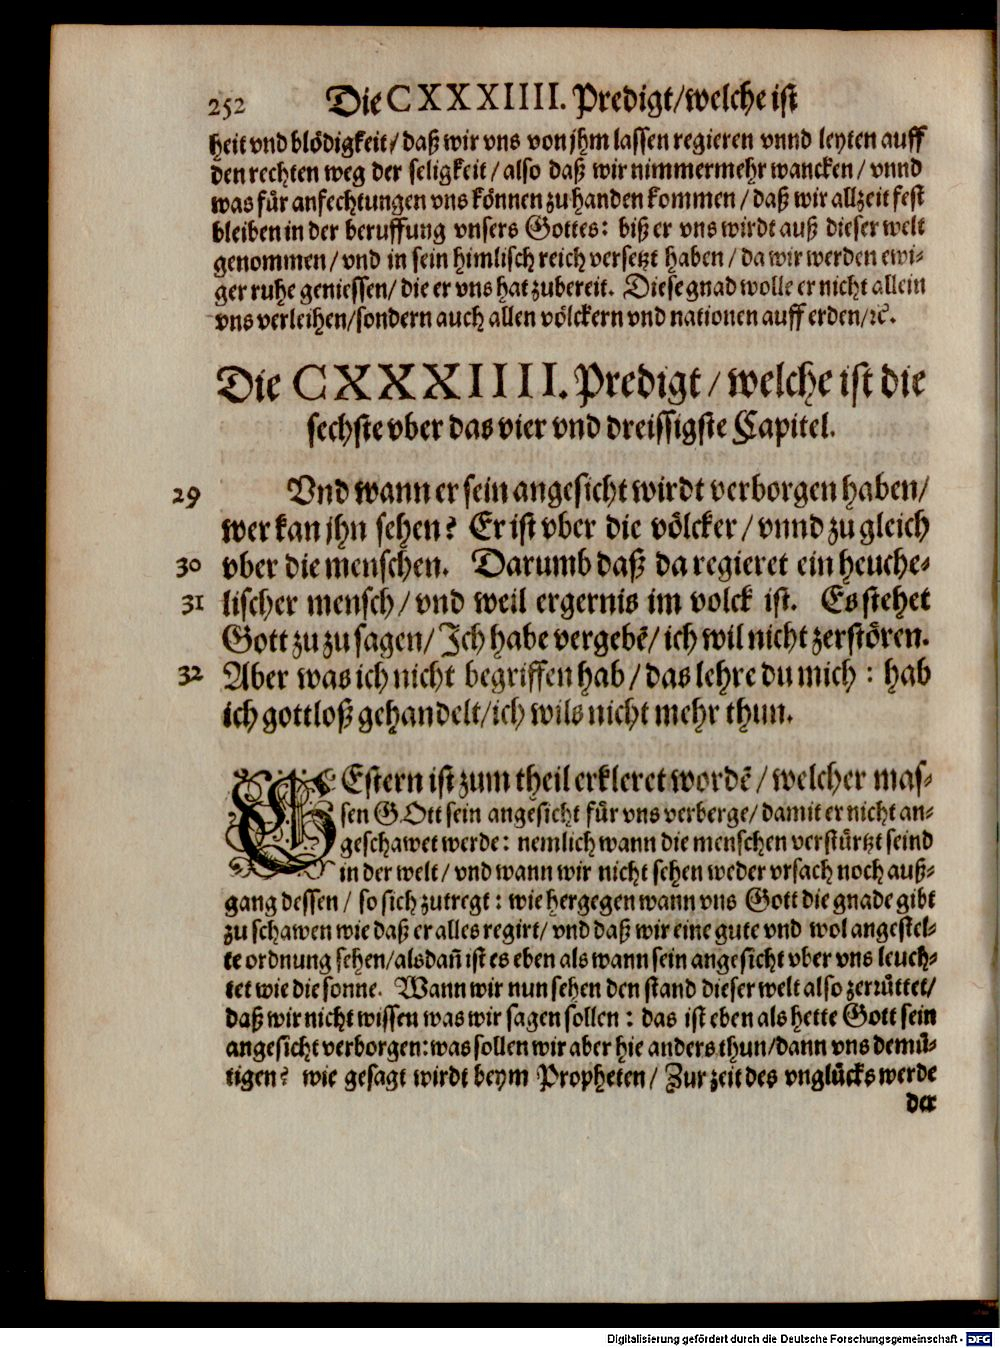 252 Die CXXXIIII. Predigt/welche ist
heit vnd blödigkeit/ daß wir vns von jhm lassen regieren vnnd leyten auff
den rechten weg der seligkeit/ also daß wir nimmermehr wancken/ vnnd
was für anfechtungen vns können zu handen kommen/ daß wir allzeit fest
bleiben in der beruffung vnsers Gottes: biß er vns wirdt auß dieser welt
genommen/ vnd in sein himlisch reich versetzt haben/ da wir werden ewi-
ger ruhe geniessen/ die er vns hat zubereit. Diese gnad wolle er nicht allein
vns verleihen/sondern auch allen völckern vnd nationen auff erden/ꝛc.
Die CXXXIIII. Predigt/ welche ist die
sechste vber das vier vnd dreissigste Capitel.
29 Vnd wann er sein angesicht wirdt verborgen haben/
wer kan jhn sehen? Er ist vber die völcker/ vnnd zu gleich
30 vber die menschen. Darumb daß da regieret ein heuche-
31 lischer mensch/ vnd weil ergernis im volck ist. Es stehet
Gott zu zu sagen/ Ich habe vergebē/ ich wil nicht zerstören.
32 Aber was ich nicht begriffen hab/ das lehre du mich: hab
ich gottloß gehandelt/ich wils nicht mehr thun.
GEstern ist zum theil erkleret wordē/ welcher mas-
sen GOtt sein angesicht für vns verberge/ damit er nicht an-
geschawet werde: nemlich wann die menschen verstürtzt seind
in der welt/ vnd wann wir nicht sehen weder vrsach noch auß-
gang dessen/ so sich zutregt: wie hergegen wann vns Gott die gnade gibt
zu schawen wie daß er alles regirt/ vnd daß wir eine gute vnd wol angestel-
te ordnung sehen/alsdañ ist es eben als wann sein angesicht vber vns leuch-
tet wie die sonne. Wann wir nun sehen den stand dieser welt also zerrüttet/
daß wir nicht wissen was wir sagen sollen: das ist eben als hette Gott sein
angesicht verborgen: was sollen wir aber hie anders thun/dann vns demü-
tigen? wie gesagt wirdt beym Propheten/ Zur zeit des vnglücks werde
der
Digitalisierung gefördert durch die Deutsche Forschungsgemeinschaft - DFG